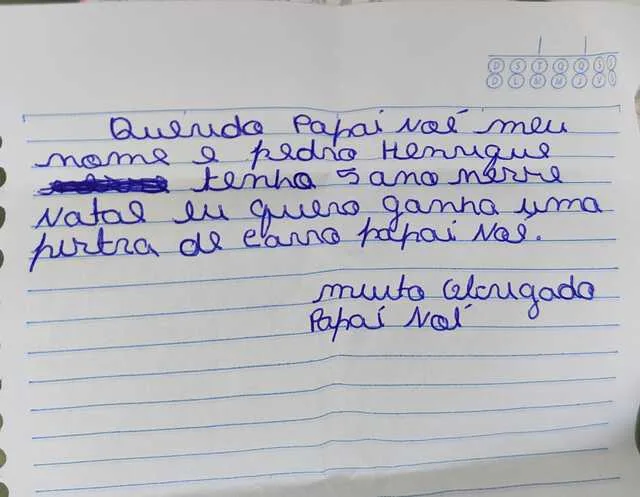 D S T Q Q S S
D L M M J V S
Querido Papai Noé meu
nome e pedro Henrique
tenho 5 ano nerre
Natal eu quero ganha uma
pirtra de carro papai Noe.
muito obrigado
Papai Noé